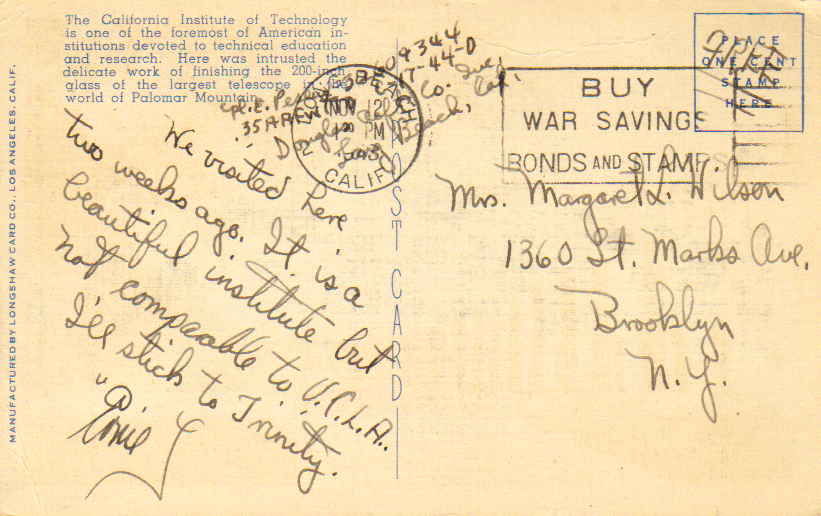 The California Institute of Technology
is one of the foremost of American in-
stitutions devoted to technical education
and research. Here was intrusted the
delicate work of finishing the 200-inch
glass of the largest telescope in the
world of Palomar Mountain.
LONG BEACH
NOV 20
PM
CALIF.
BUY
WAR SAVINGS
BONDS AND STAMPS
PLACE
ONE CENT
STAMP
HERE
Free
Long Beach,
We visited here
two weeks ago. It is a
beautiful institute but
not comparable to U.C.L.A..
I'll stick to Trinity.
Ernie
POST CARD
Mrs. Margaret L. Wilson
1360 St. Marks Ave.
Brooklyn
N.Y.
MANUFACTURED BY LONGSHAW CARD CO., LOS ANGELES, CALIF.